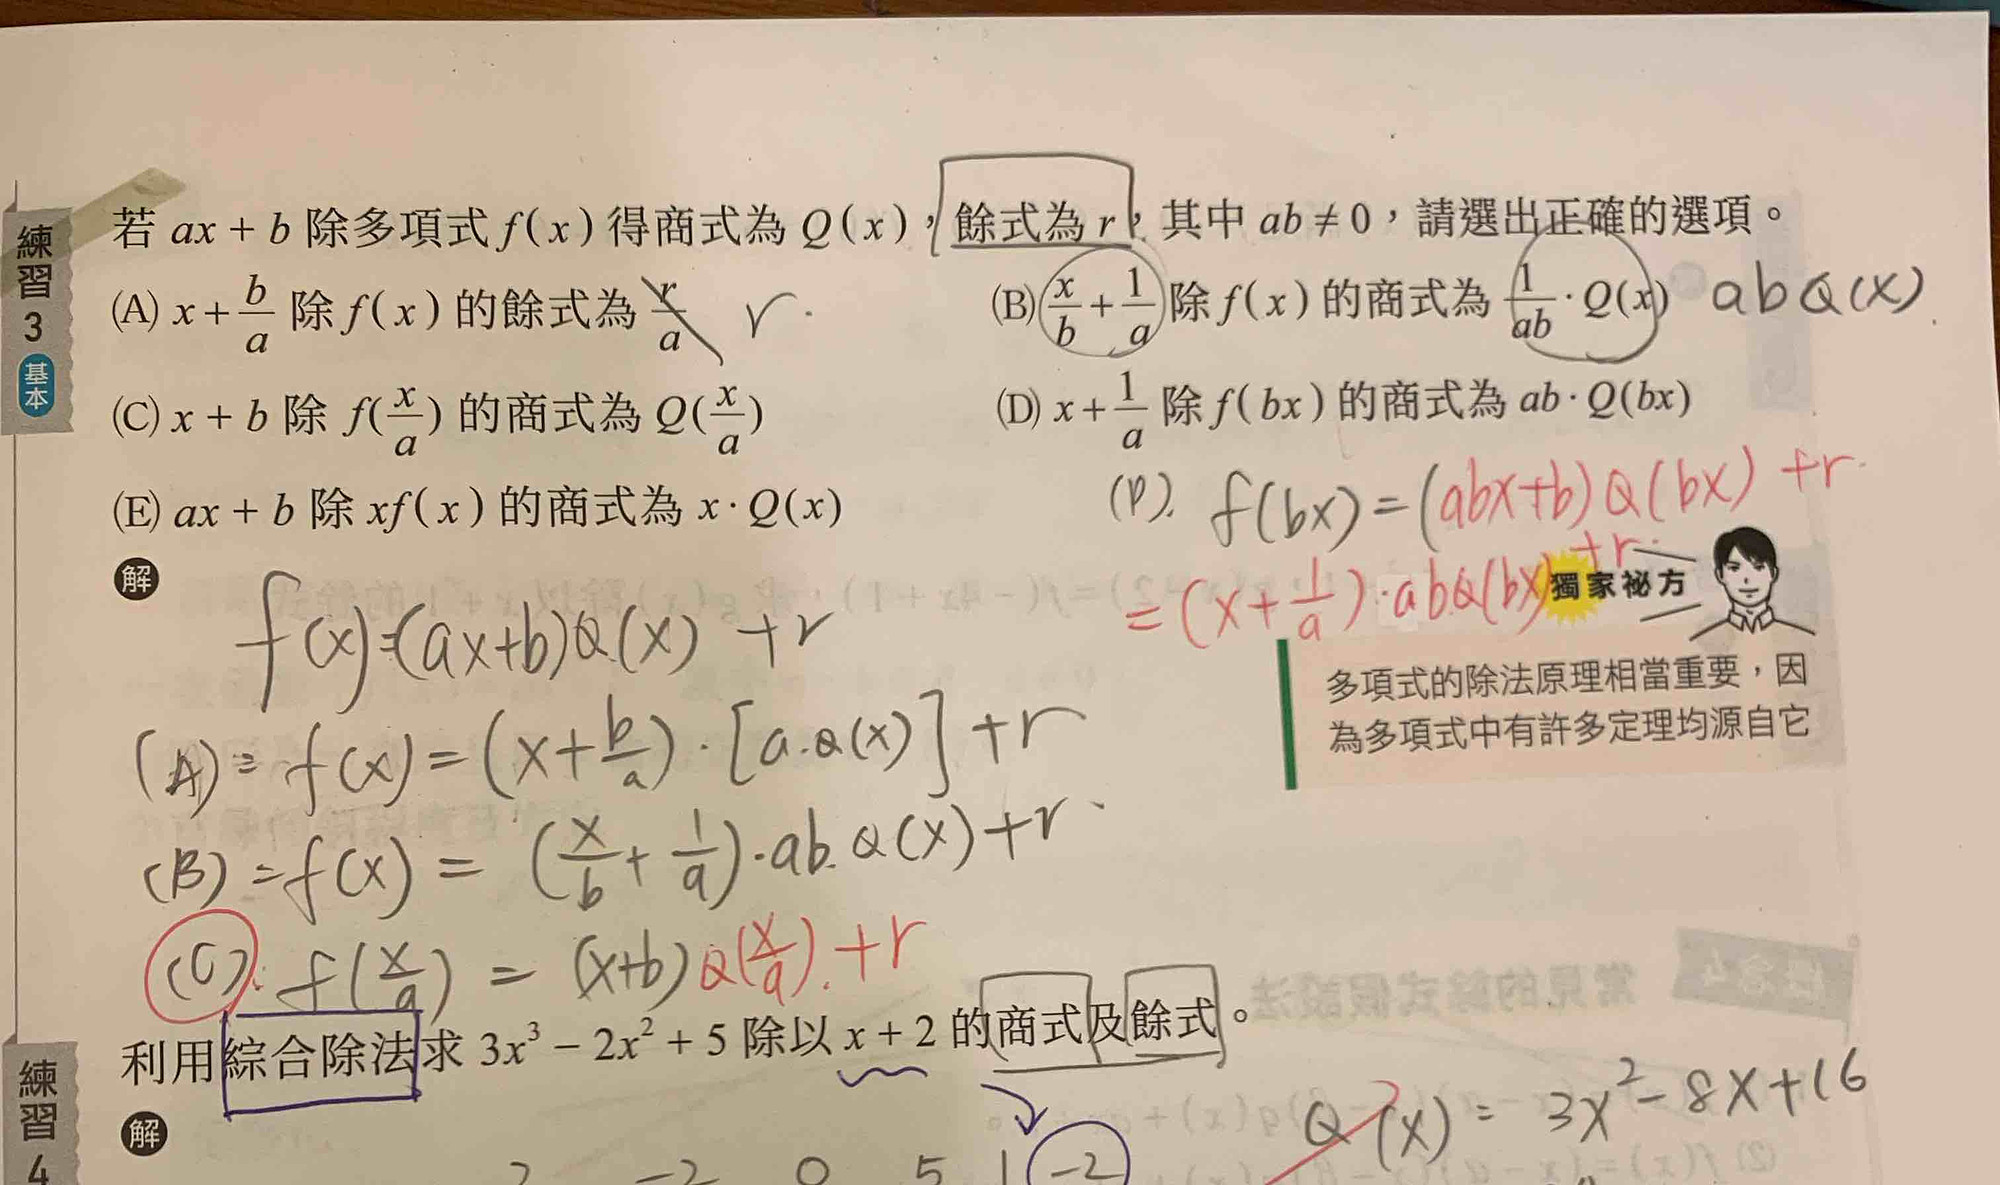 練習3 基本
若 ax + b 除多項式 f(x) 得商式為 Q(x),餘式為 r,其中 ab ≠ 0,請選出正確的選項。
(A) x + b/a 除 f(x) 的餘式為 r/a r.
(B) x/b + 1/a 除 f(x) 的商式為 1/ab · Q(x) abQ(x)
(C) x + b 除 f(x/a) 的商式為 Q(x/a)
(D) x + 1/a 除 f(bx) 的商式為 ab · Q(bx)
(E) ax + b 除 xf(x) 的商式為 x · Q(x)
(D). f(bx) = (abx+b)Q(bx) + r.
= (x + 1/a) · abQ(bx) + r.
解
f(x) = (ax+b)Q(x) + r
(A) = f(x) = (x + b/a) · [a.Q(x)] + r
(B) = f(x) = (x/b + 1/a) · ab.Q(x) + r
(C). f(x/a) = (x+b) Q(x/a). + r
獨家祕方
多項式的除法原理相當重要,因
為多項式中有許多定理均源自它
練習4
利用綜合除法求 3x³ − 2x² + 5 除以 x + 2 的商式及餘式。
解
Q(x) = 3x² − 8x + 16
−2 0 5 −2